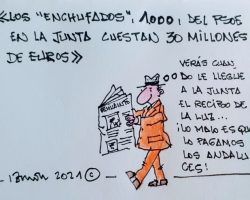 «LOS "ENCHUFADOS"; 1000; DEL PSOE
EN LA JUNTA CUESTAN 30 MILLONES
DE EUROS»
VERÁS CUAN_
DO LE LLEGUE
A LA JUNTA
EL RECIBO DE
LA LUZ...
¡LO MALO ES QUE
LO PAGAMOS
LOS ANDALU_
CES!
2021 ©